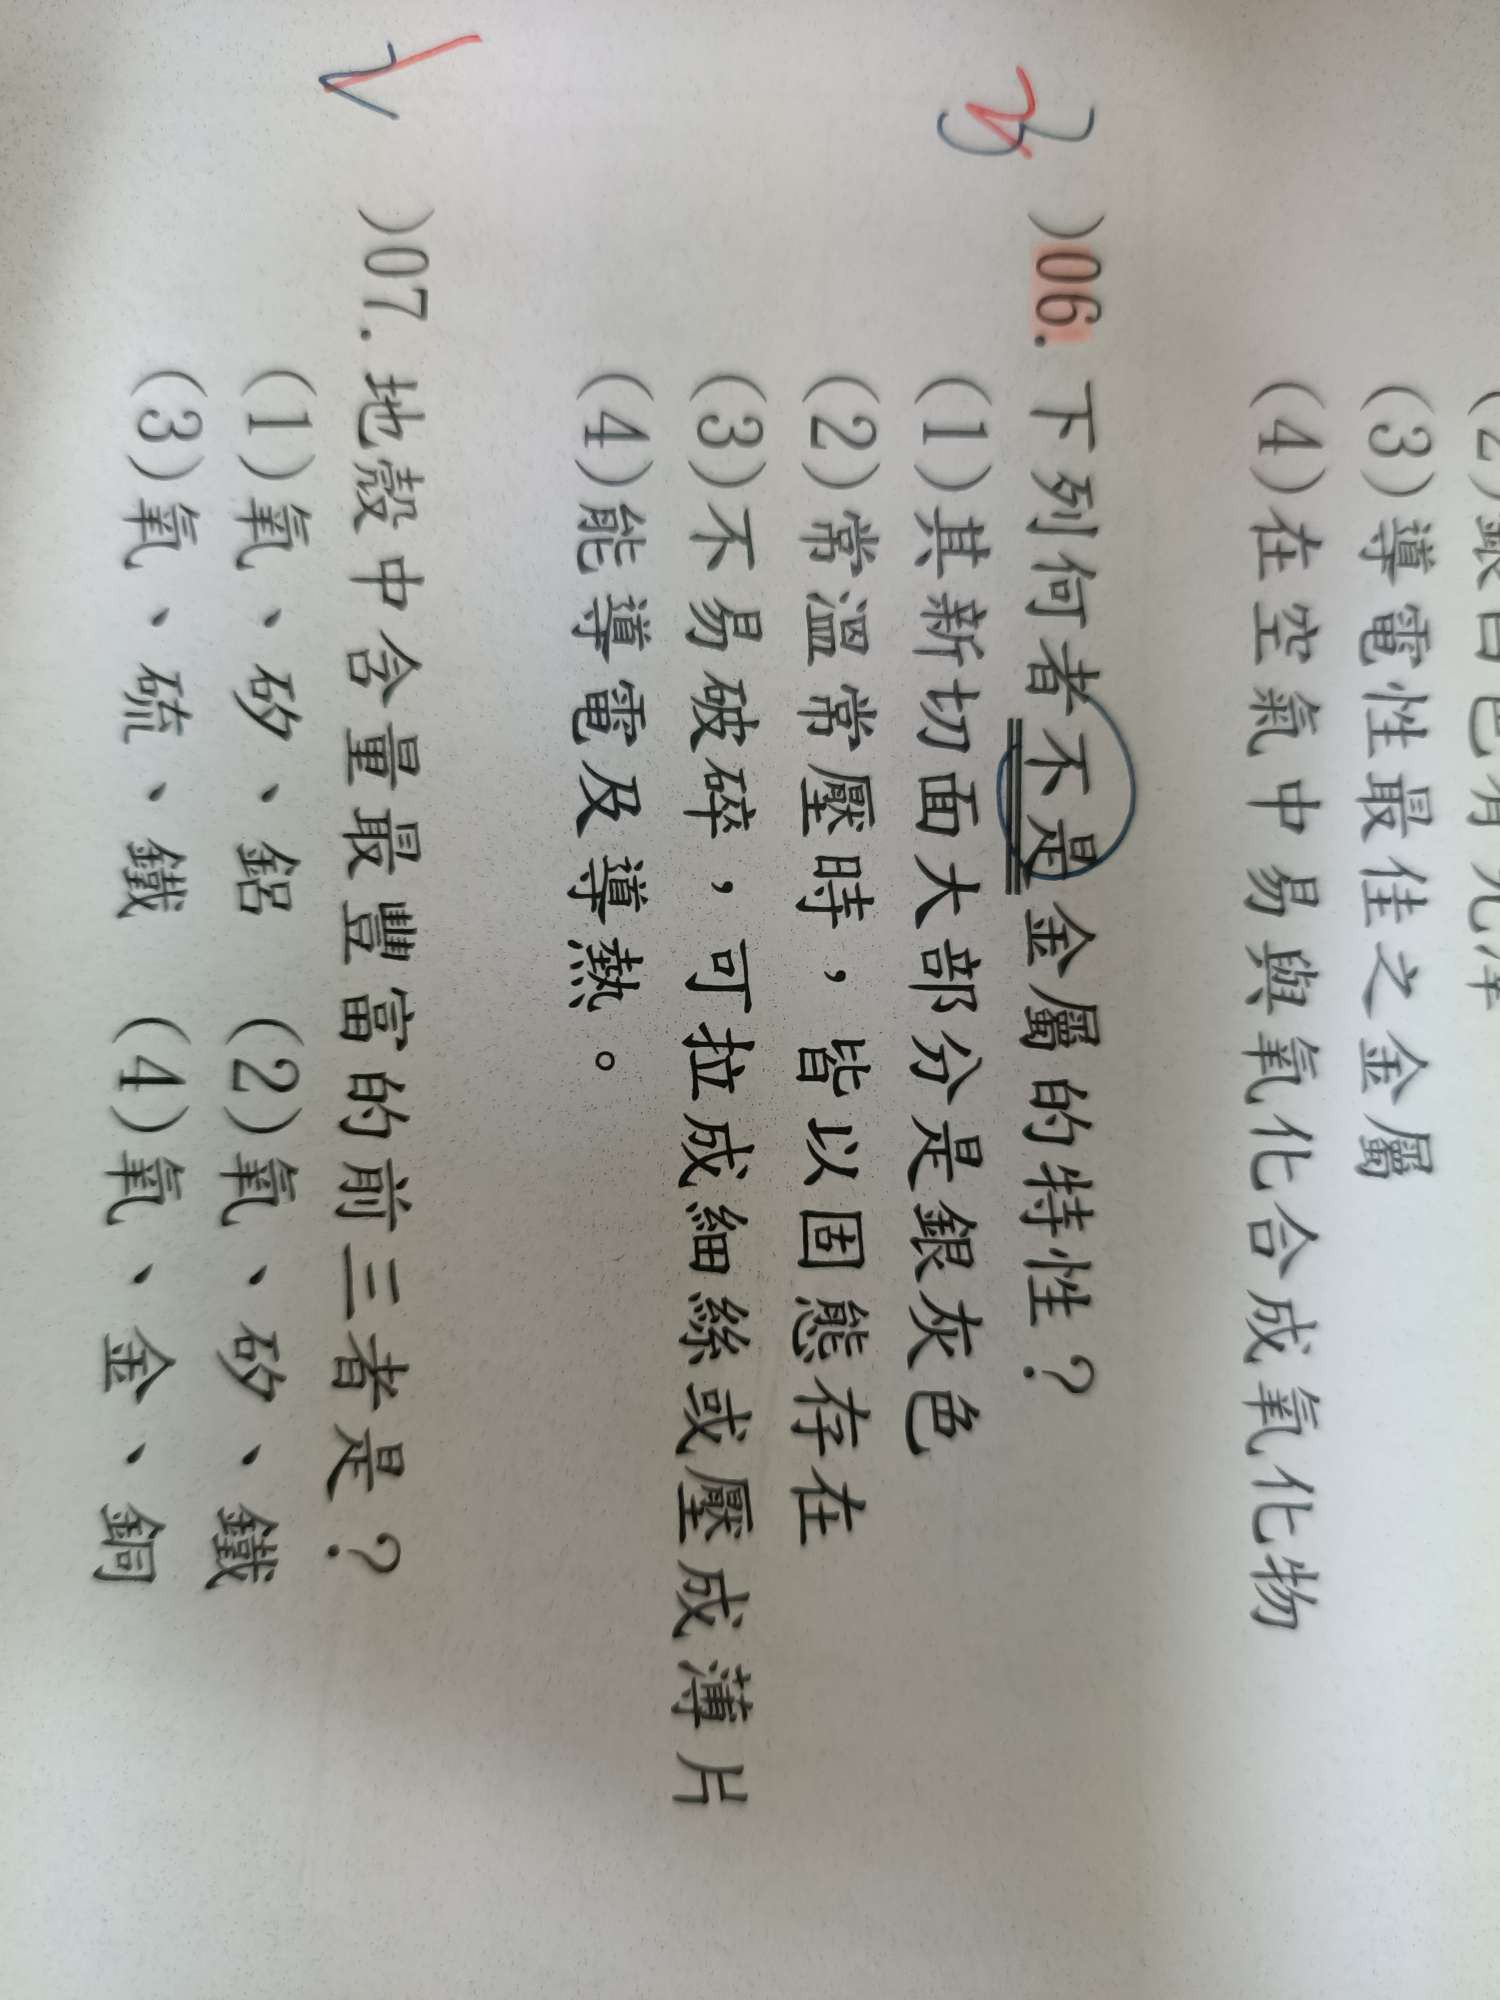 (3)導電性最佳之金屬
(4)在空氣中易與氧化合成氧化物
)06.下列何者不是金屬的特性？
(1)其新切面大部分是銀灰色
(2)常溫常壓時，皆以固態存在
(3)不易破碎，可拉成細絲或壓成薄片
(4)能導電及導熱。
)07.地殼中含量最豐富的前三者是？
(1)氧、矽、鋁 (2)氧、矽、鐵
(3)氧、硫、鐵 (4)氧、金、銅